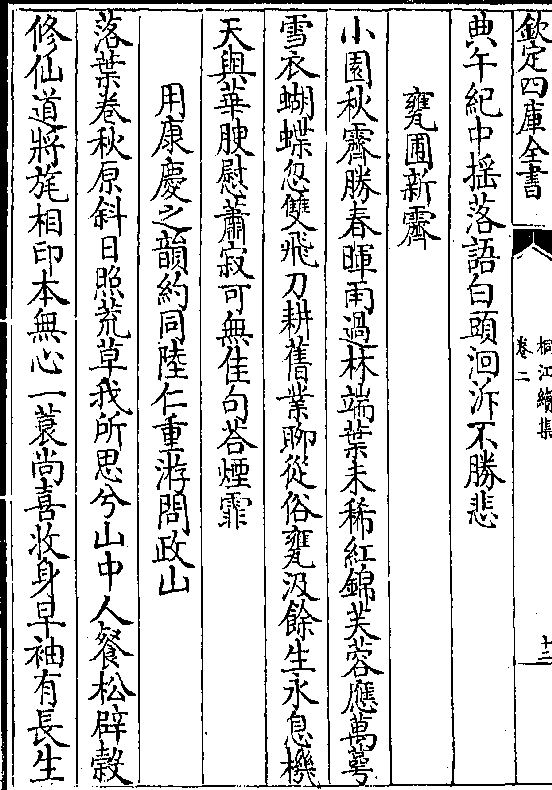 欽定四庫全書
桐江續集
卷二
十三
典午紀中揺落語白頭洄泝不勝悲
甕圃新霽
小園秋霽勝春暉雨過林端葉未稀紅錦芙蓉應萬蕚
雪衣蝴蝶忽雙飛刀耕舊業聊從俗甕汲餘生永息機
天與華腴慰蕭寂可無佳句荅煙霏
用康慶之韻約同陸仁重游問政山
落葉卷秋原斜日照荒草我所思兮山中人餐松辟榖
修仙道將旄相印本無心一蓑尚喜收身早袖有長生